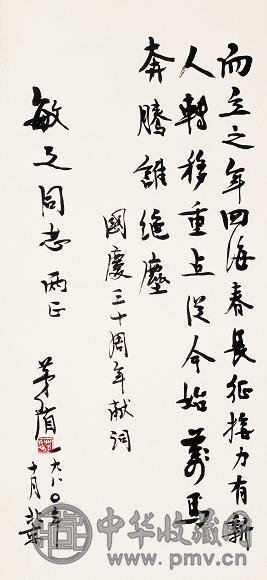 而立之年四海春長征接力有新
人轉移重点從今始萬馬
奔騰誰絕塵
國慶三十周年献詞
敏之同志 两正
茅盾 一九八〇年
十月 北京
中华收藏网
www.pmv.cn